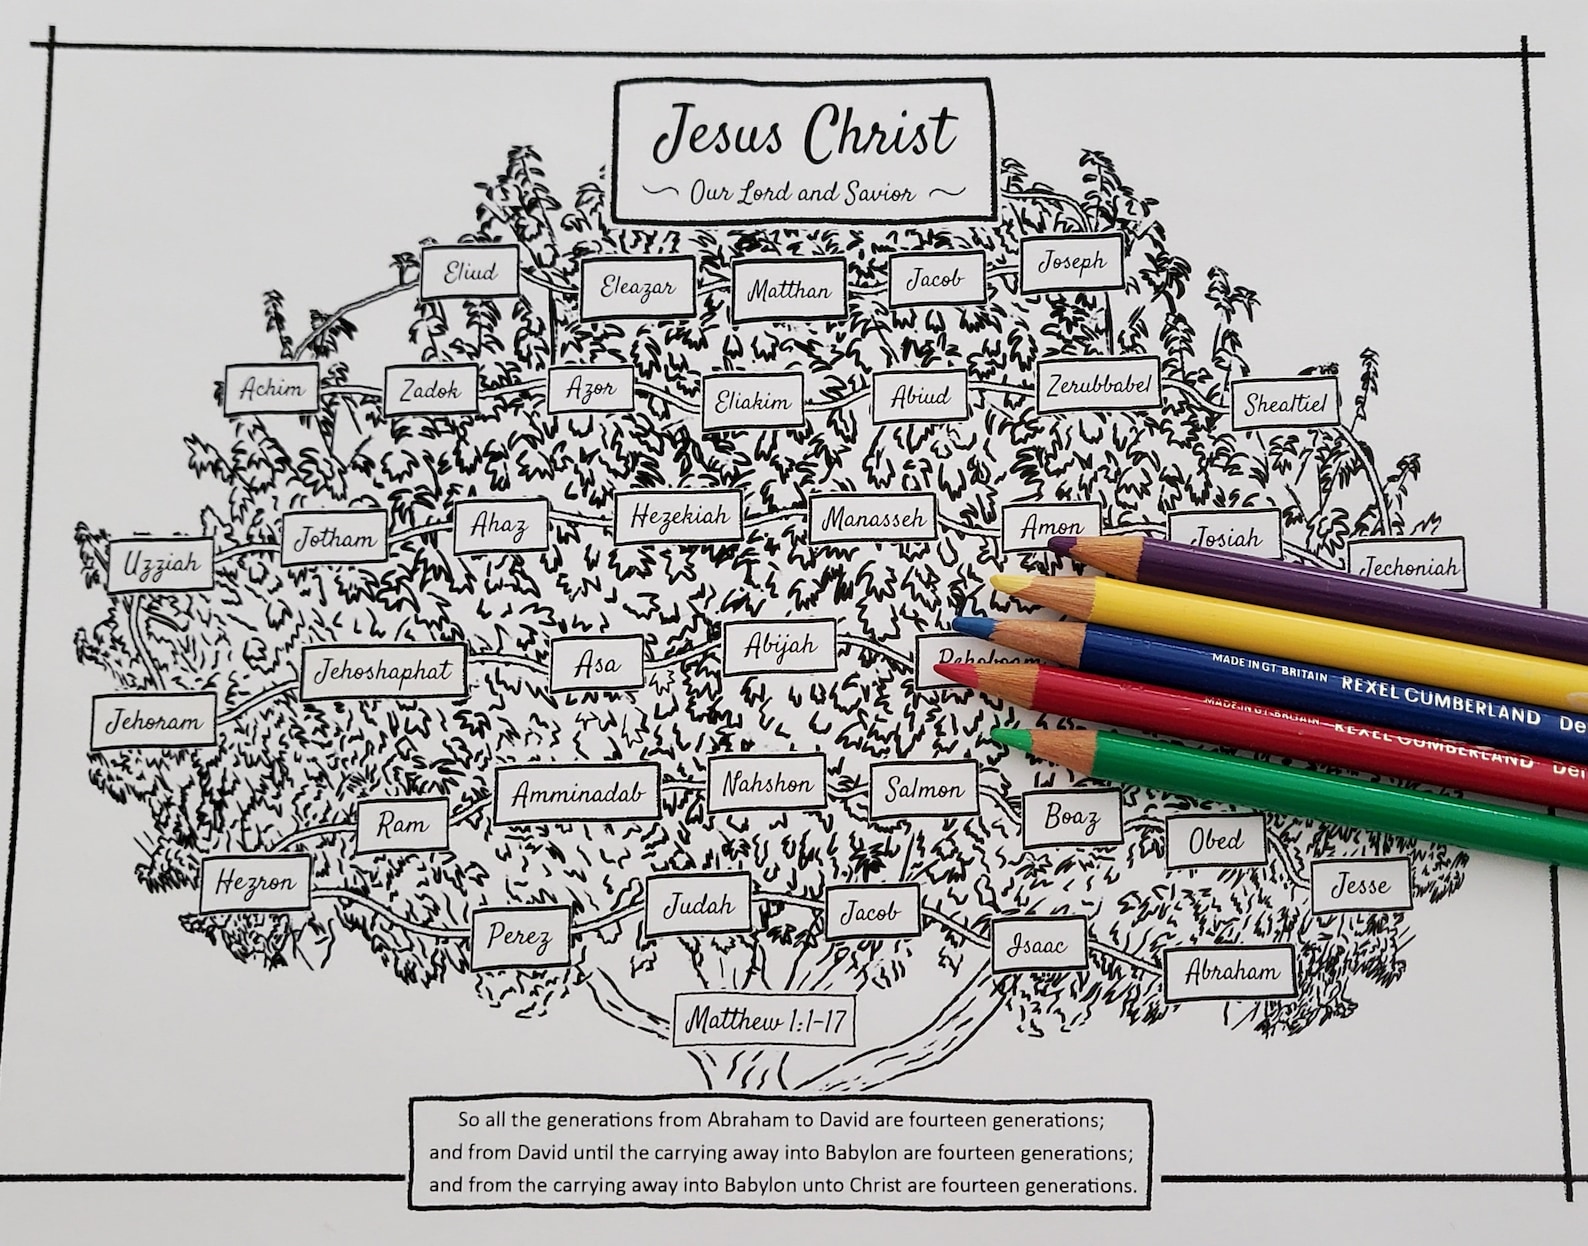 Jesus Christ
Our Lord and Savior
Eliud Eleazar Matthan Jacob Joseph
Achim Zadok Azor Eliakim Abiud Zerubbabel Shealtiel
Uzziah Jotham Ahaz Hezekiah Manasseh Amon Josiah Jechoniah
Jehoram Jehoshaphat Asa Abijah Rehoboam
MADE IN GT. BRITAIN REXEL CUMBERLAND De
MADE IN GT. BRITAIN REXEL CUMBERLAND Der
Ram Amminadab Nahshon Salmon Boaz Obed
Hezron Perez Judah Jacob Isaac Abraham Jesse
Matthew 1:1-17
So all the generations from Abraham to David are fourteen generations;
and from David until the carrying away into Babylon are fourteen generations;
and from the carrying away into Babylon unto Christ are fourteen generations.